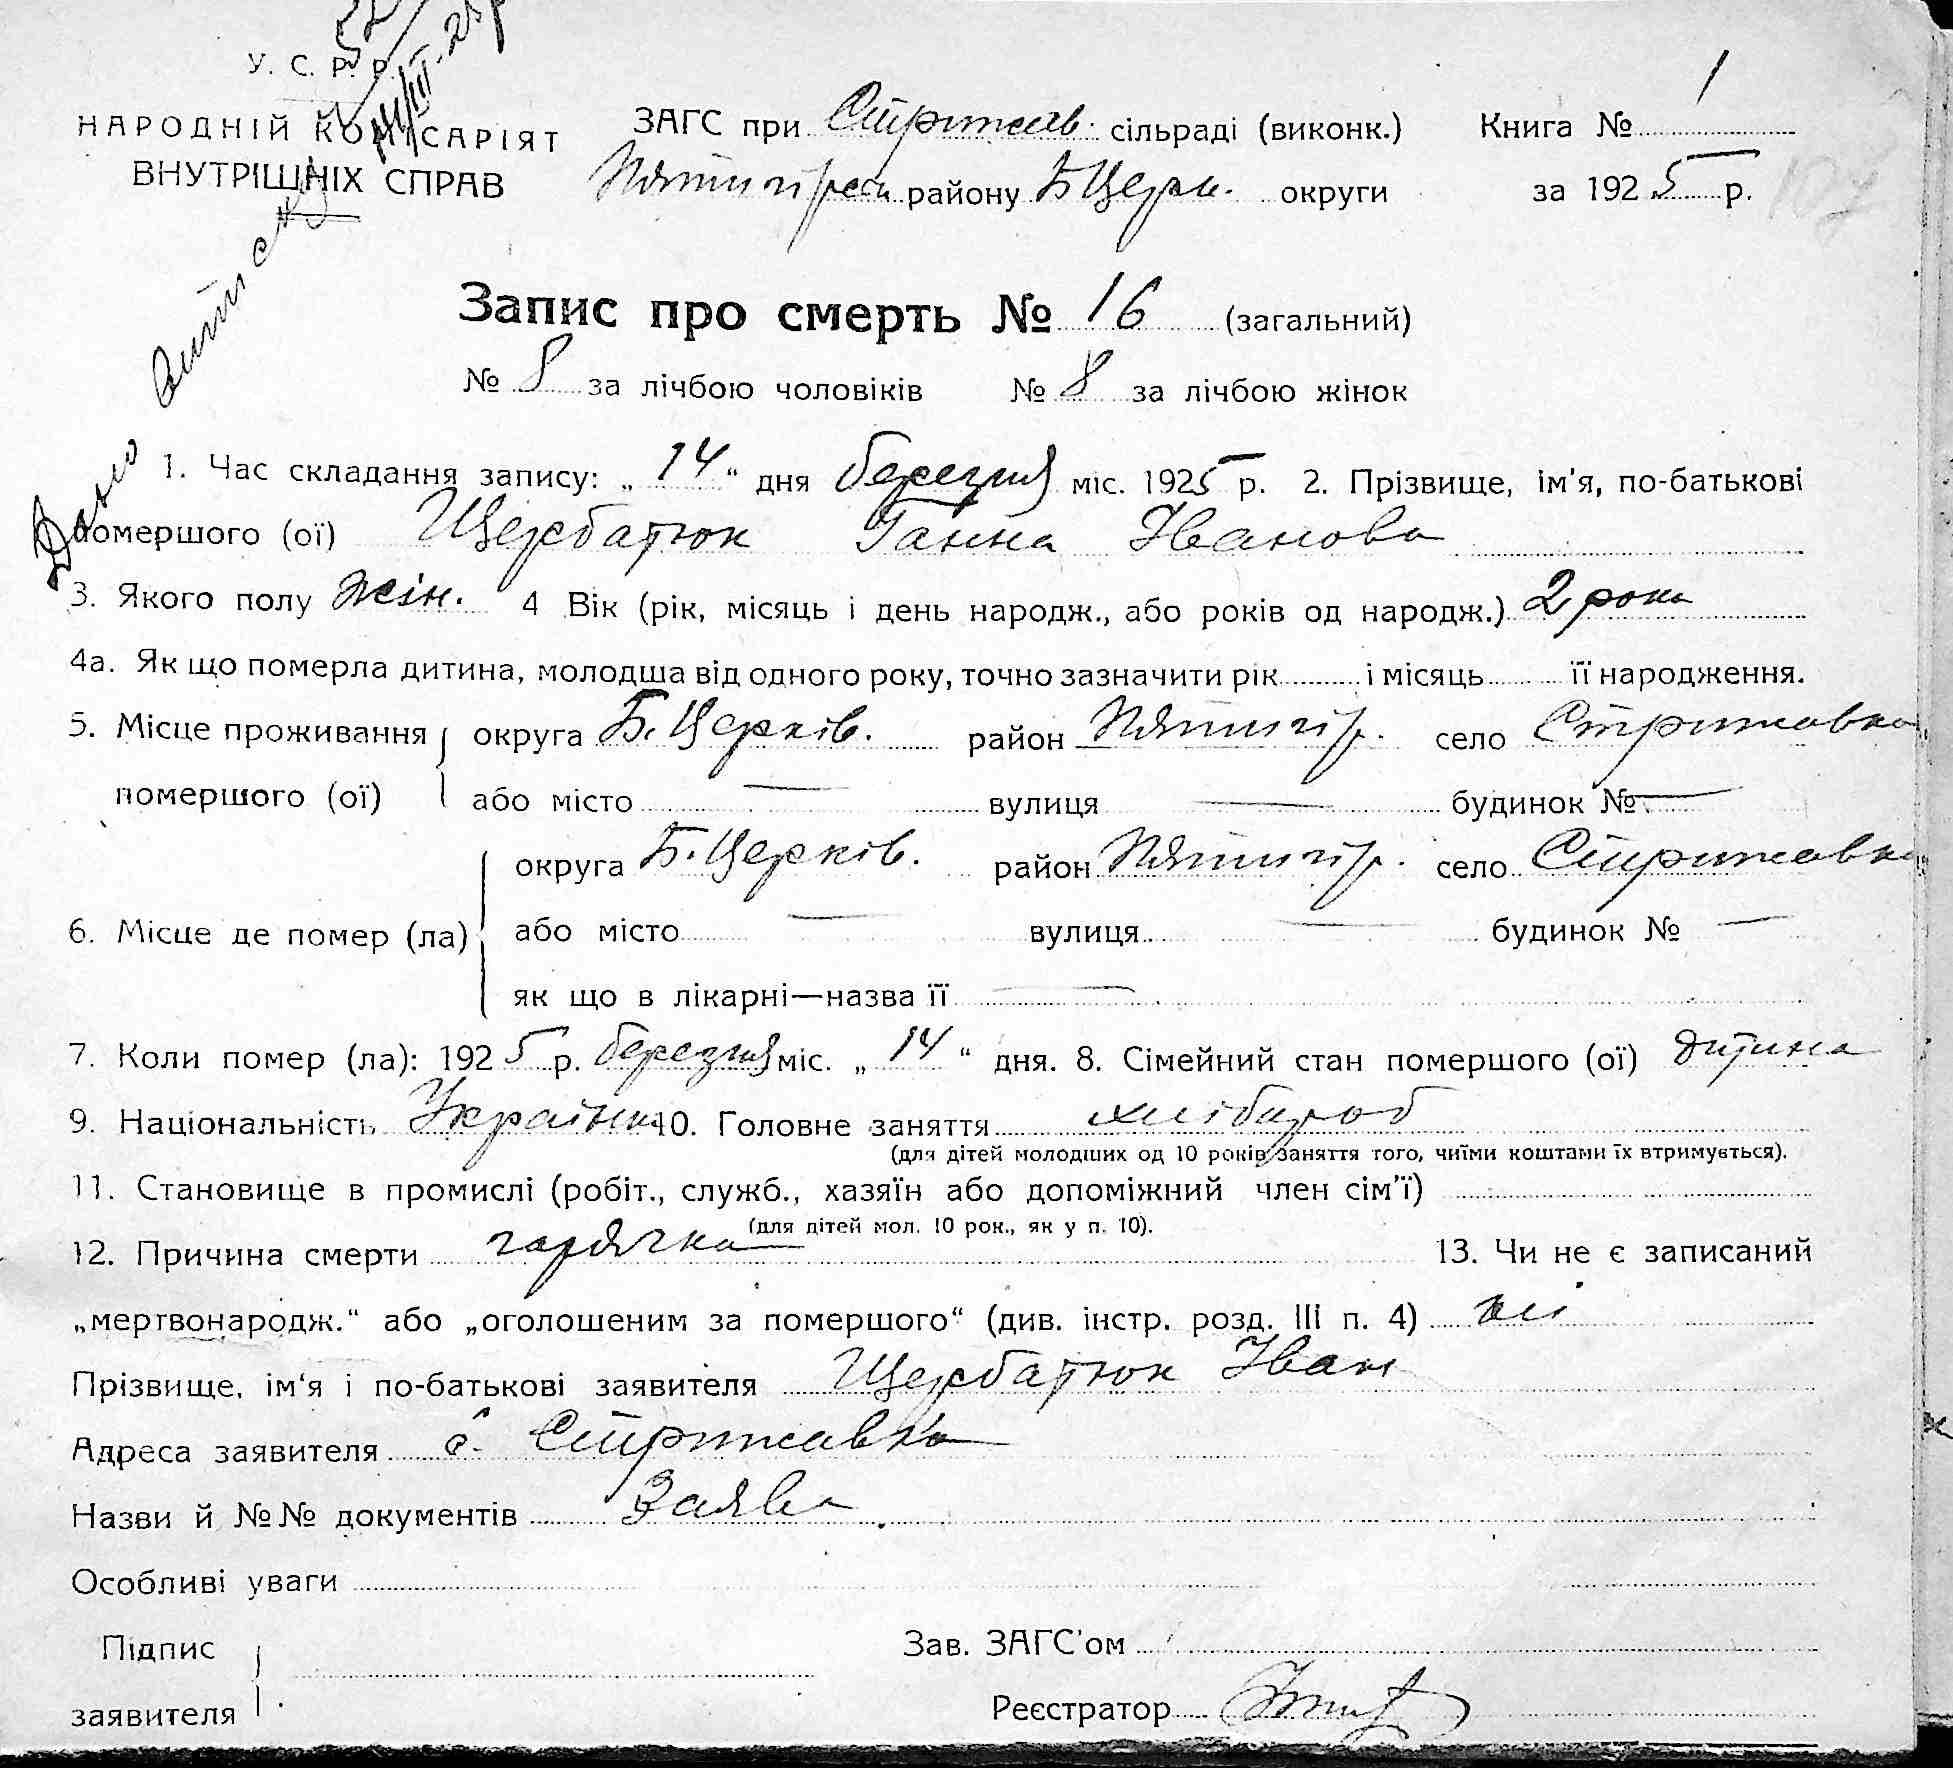 У. С. Р. Р.
НАРОДНІЙ КОМІСАРІЯТ
ВНУТРІШНІХ СПРАВ
ЗАГС при Стрижав. сільраді (виконк.) Книга № 1
Пятигірськ району Б Церк. округи за 1925 р.
Дано витиску
Запис про смерть № 16 (загальний)
№ 8 за лічбою чоловіків № 8 за лічбою жінок
1. Час складання запису: „14“ дня березня міс. 1925 р. 2. Прізвище, ім'я, по-батькові
помершого (ої) Щербатюк Ганна Іванова
3. Якого полу жін. 4 Вік (рік, місяць і день народж., або років од народж.) 2 роки
4а. Як що померла дитина, молодша від одного року, точно зазначити рік і місяць її народження.
5. Місце проживання округа Б. Церків. район Пятигір. село Стрижавка
помершого (ої) або місто — вулиця — будинок № —
округа Б. Церків. район Пятигір. село Стрижавка
6. Місце де помер (ла) або місто — вулиця — будинок № —
як що в лікарні—назва її —
7. Коли помер (ла): 1925 р. березня міс. „14“ дня. 8. Сімейний стан помершого (ої) дитина
9. Національність Українка 10. Головне заняття хлібороб
(для дітей молодших од 10 років заняття того, чиїми коштами їх втримується).
11. Становище в промислі (робіт., служб., хазяїн або допоміжний член сім'ї)
(для дітей мол. 10 рок., як у п. 10).
12. Причина смерти гарячка 13. Чи не є записаний
„мертвонародж.“ або „оголошеним за помершого“ (див. інстр. розд. III п. 4) ні
Прізвище, ім'я і по-батькові заявителя Щербатюк Іван
Адреса заявителя с. Стрижавка
Назви й №№ документів Заява
Особливі уваги
Підпис
заявителя
Зав. ЗАГС'ом
Реєстратор